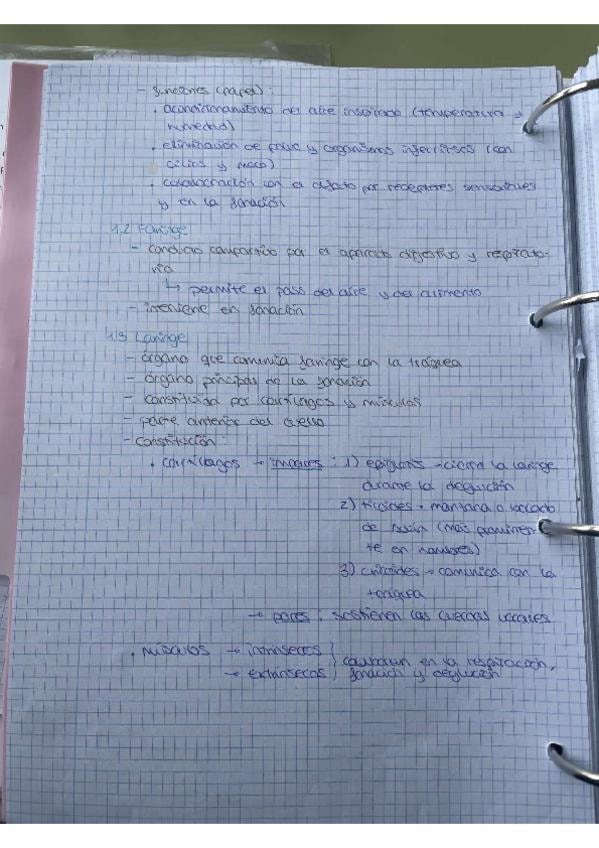 - funciones (papel):
. acondicionamiento del aire inspirado (temperatura y
humedad)
. eliminación de polvo y organismos infecciosos (con
cilios y moco)
. colaboración con el olfato por receptores sensoriales
y en la fonación
1.2 Faringe
- conducto compartido por el aparato digestivo y respirato-
rio
↳ permite el paso del aire y del alimento
- interviene en fonación
1.3 Laringe
- órgano que comunica faringe con la tráquea
- órgano principal de la fonación
- constituida por cartílagos y músculos
- parte anterior del cuello
- constitución:
. cartílagos → impares: 1) epiglotis → cierra la laringe
durante la deglución
2) tiroides → manzana o bocado
de Adán (más prominen-
te en hombres)
3) cricoides → comunica con la
tráquea
→ pares. sostienen las cuerdas vocales
. músculos → intrínsecos } colaboran en la respiración,
→ extrínsecos } fonación y deglución